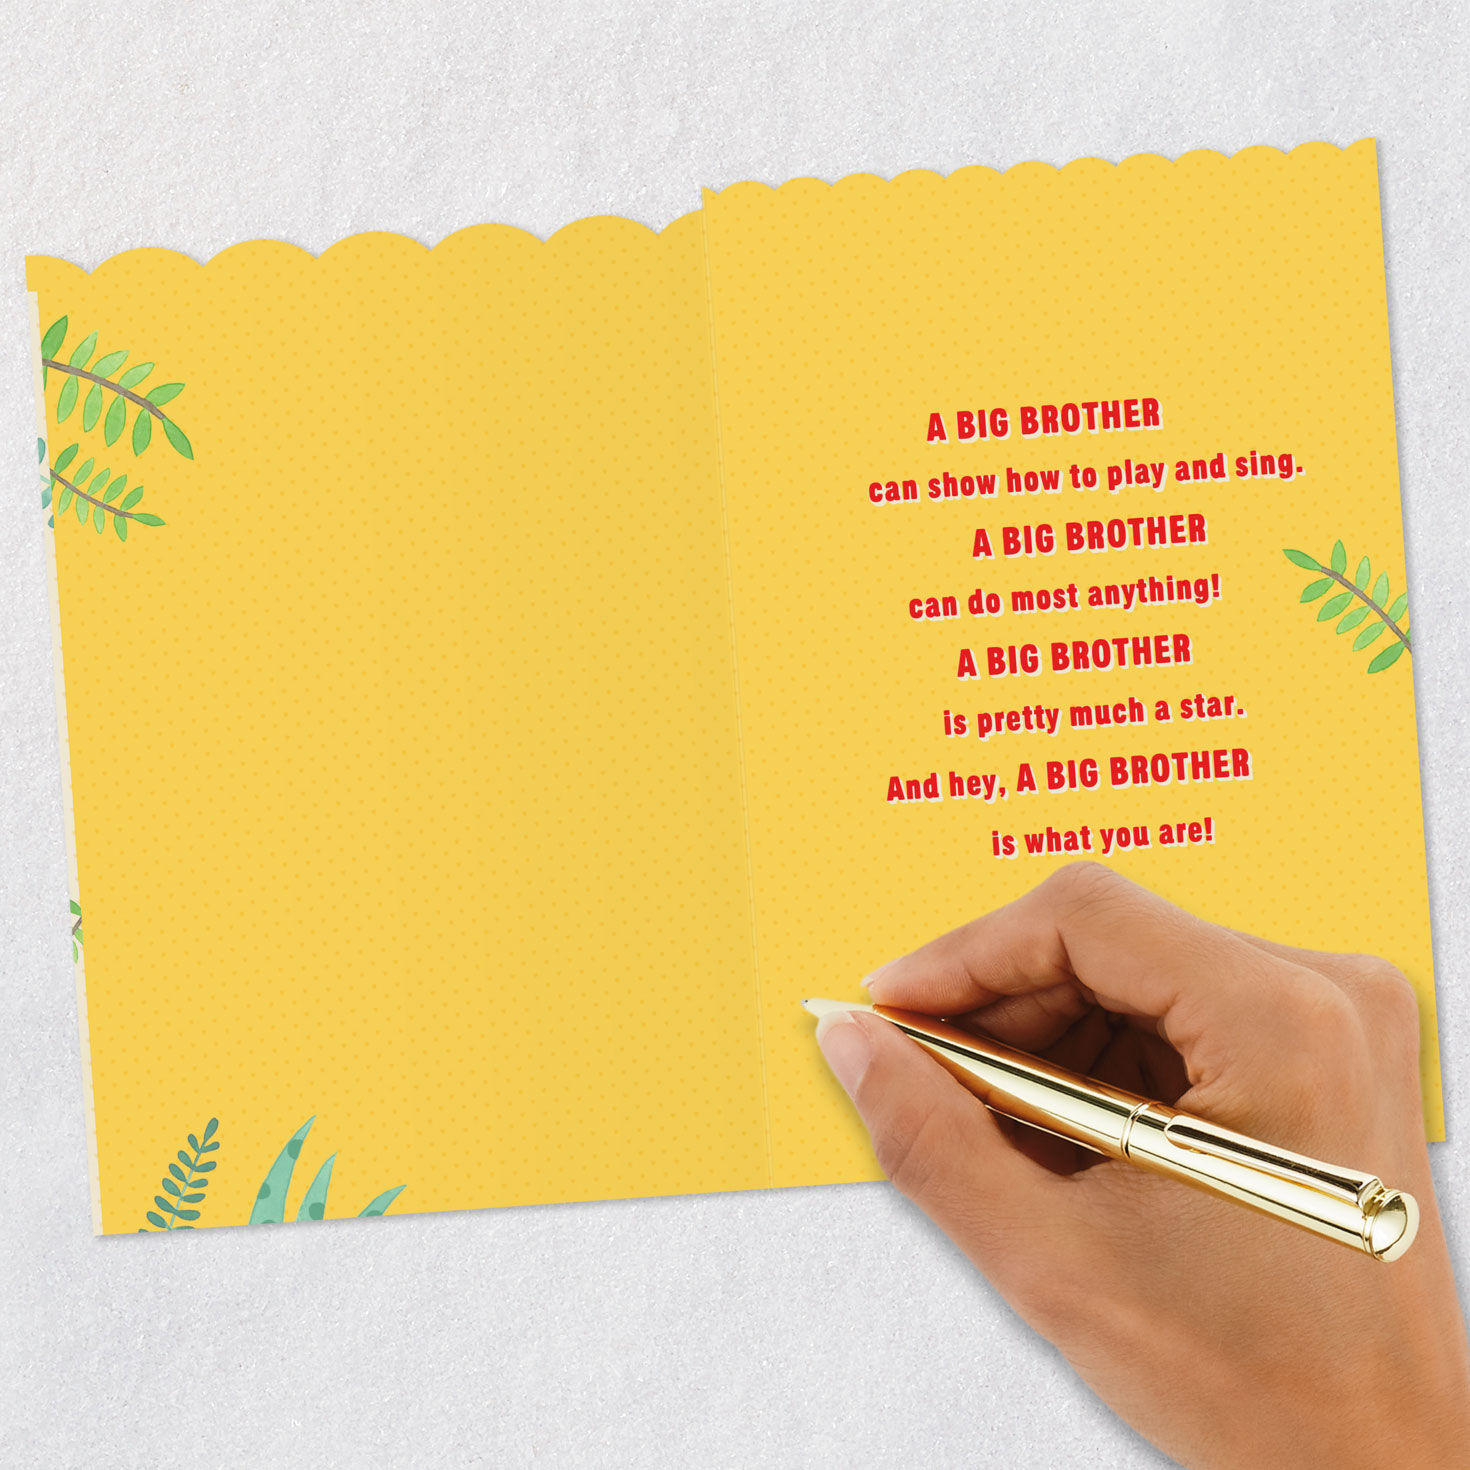 A BIG BROTHER
can show how to play and sing.
A BIG BROTHER
can do most anything!
A BIG BROTHER
is pretty much a star.
And hey, A BIG BROTHER
is what you are!